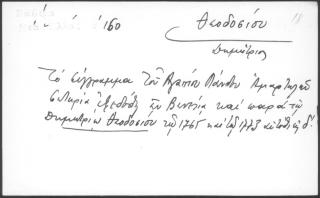 160
Θεοδοσίου
Δημήτριος
Τό σύγγραμμα τοῦ Αγαπίου Λάνδου Ἁμαρτωλῶν
σωτηρία ἐξεδόθη ἐν Βενετία καί παρά τῷ
Δημητρίῳ Θεοδοσίου τῷ 1765 καί τῷ 1773